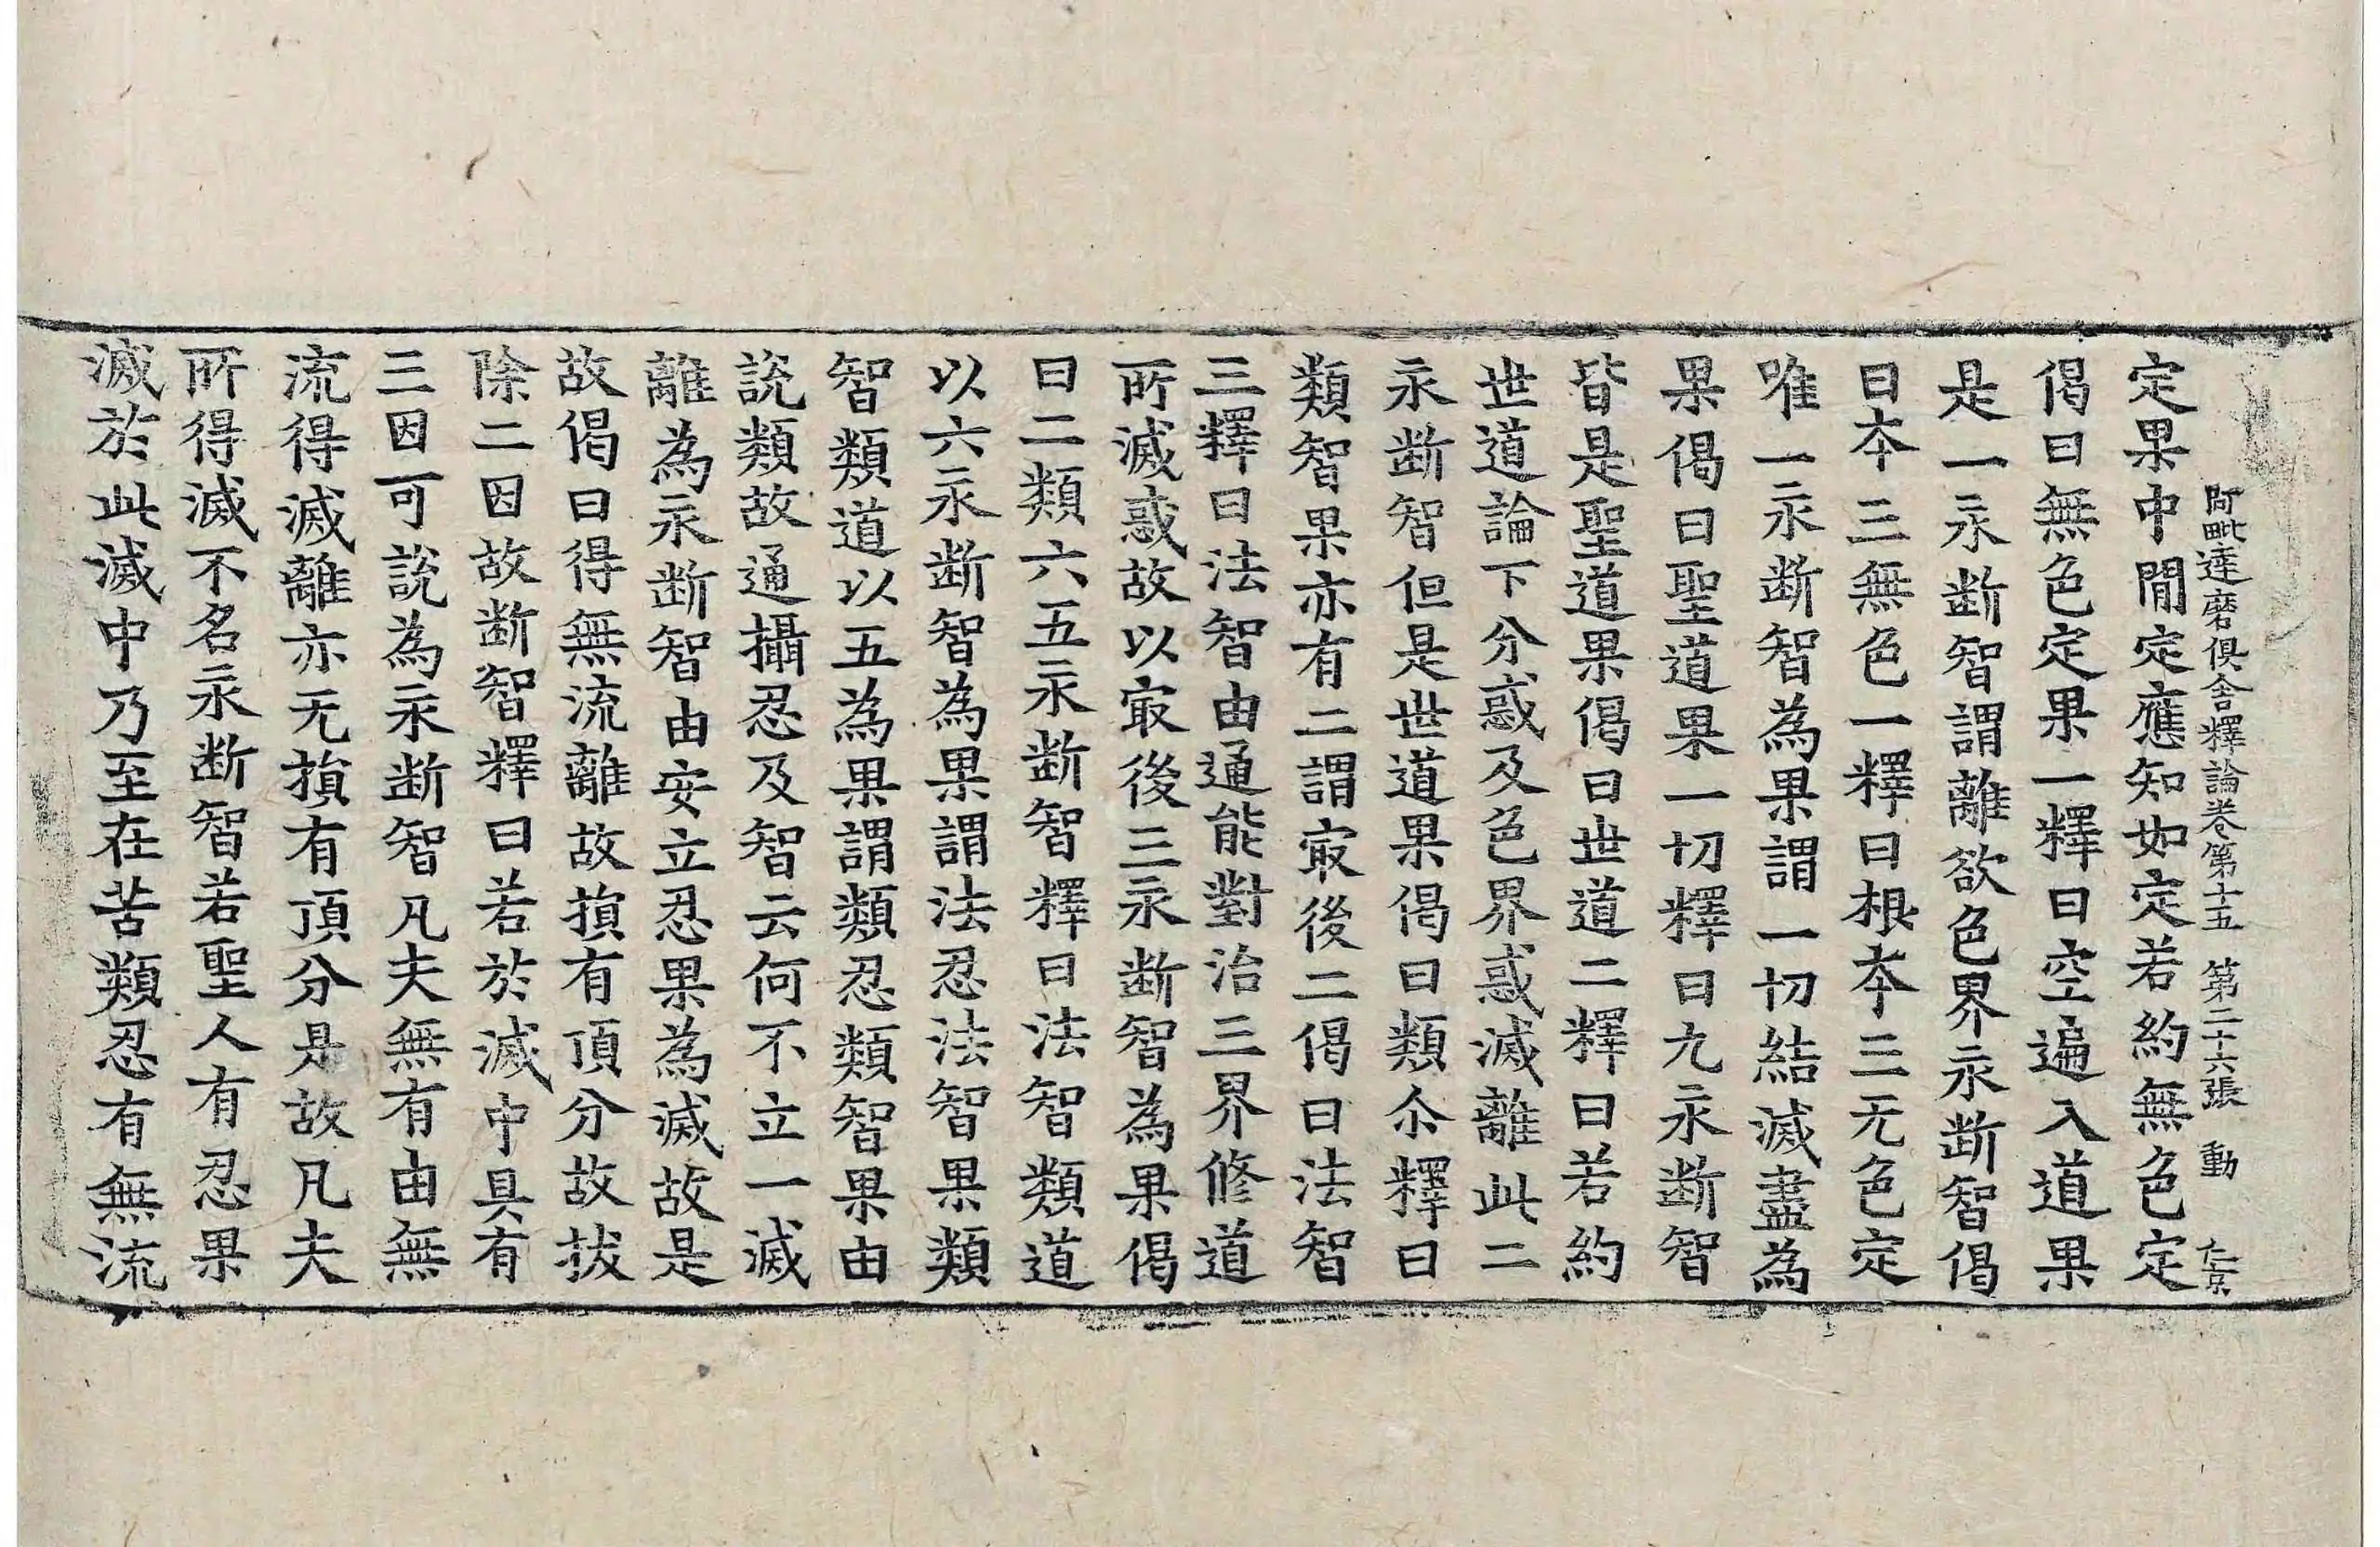 阿毗達磨俱舍釋論卷第十五　第二十六張　動　仁京
定果中閒定應知如定若約無色定
偈曰無色定果一釋曰空遍入道果
是一永断智謂離欲色界永断智偈
曰本三無色一釋曰根本三无色定
唯一永断智為果謂一切結滅盡為
果偈曰聖道果一切釋曰九永断智
皆是聖道果偈曰世道二釋曰若約
世道論下分惑及色界惑滅離此二
永断智但是世道果偈曰類尒釋曰
類智果亦有二謂㝡後二偈曰法智
三釋曰法智由通能對治三界修道
所滅惑故以㝡後三永断智為果偈
曰二類六五永断智釋曰法智類道
以六永断智為果謂法忍法智果類
智類道以五為果謂類忍類智果由
說類故通攝忍及智云何不立一滅
離為永断智由安立忍果為滅故是
故偈曰得無流離故損有頂分故拔
除二因故断智釋曰若於滅中具有
三因可說為永断智凡夫無有由無
流得滅離亦无損有頂分是故凡夫
所得滅不名永断智若聖人有忍果
滅於此滅中乃至在苦類忍有無流